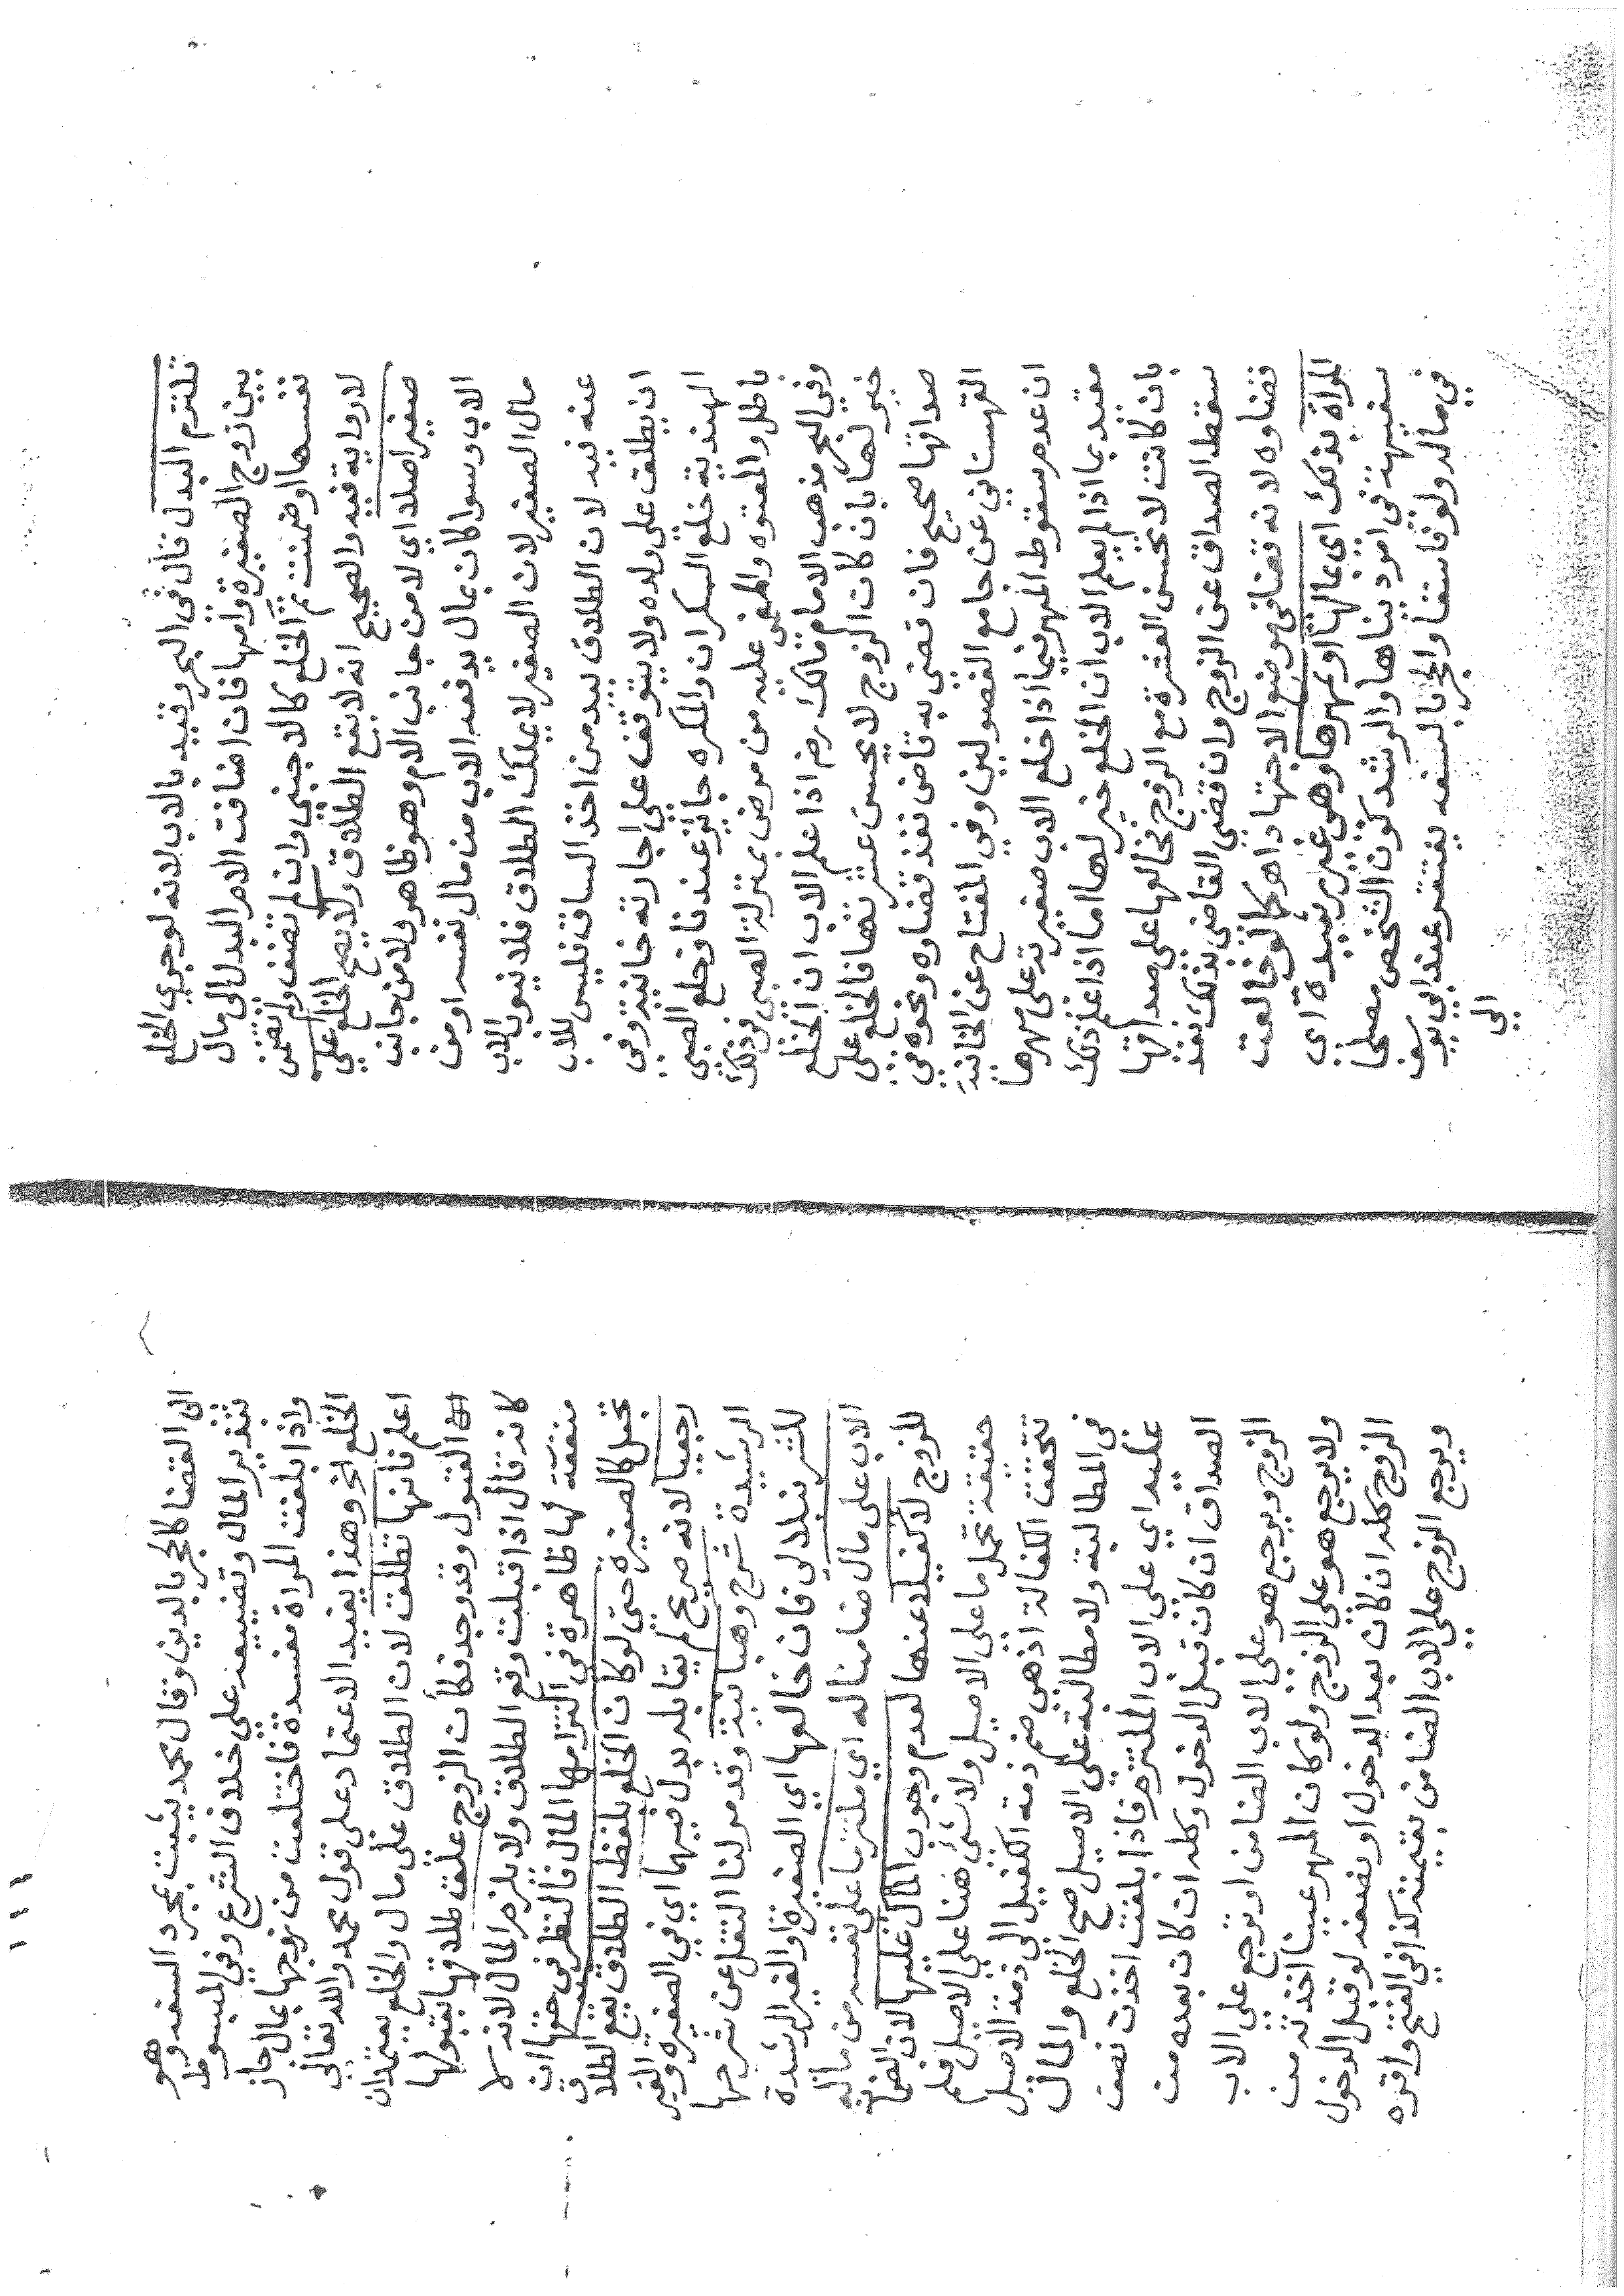 تلتزم البدل قال في البحر وقيد بالاب لانه لو جري الخلع
بين زوج الصغيرة وامها فان اضافت الام البدل الى مال
نفسها او ضمنت تم الخلع كالاجنبي وان لم تضف ولم تضمن
لا رواية فيه والصحيح انه لا يقع الطلاق ولا يصح الخلع علي
صغير اصلا اي لا من جانب الام وهو ظاهر ولا من جانب
الاب وسوا كان بمال يدفعه الاب من مال نفسه او من
مال الصغير لان الصغير لا يملك الطلاق فلا ينوب الاب
عنه فيه لان الطلاق بيد من اخذ الساق فليس للاب
ان يطلق على ولده ولا يتوقف علي اجازته خانية وفي
الهندية خلع السكران والمكره جايز عندنا وخلع الصبي
باطل والمعتوه والمغمى عليه من مرض بمنزلة الصبي في ذلك
وفي البحر مذهب الامام مالك رض اذا علم الاب ان الخلع
خير لها بان كان الزوج لا يحسن عشرتها فالخلع على
صداقها صحيح فان قضى به قاض نفذ قضاوه ونحوه في
القهستاني عن جامع الفصولين وفي المفتاح عن الخانية
ان عدم سقوط المهر فيما اذا خلع الاب صغيرته على مهرها
مقيد بما اذا لم يعلم الاب ان الخلع خير لها اما اذا علم ذلك
بان كانت لا تحسن العشرة مع الزوج فخالعها على صداقها
سقط الصداق عن الزوج وان قضي القاضي بذلك نفذ
قضاوه لانه قضا في موضع الاجتهاد اهـ كما لو خالعت
المراة بذلك اي بمالها او بمهرها وهي غير رشيدة اي
سفيهة في امور دنياها والرشد كون الشخص مصلحا
في ماله ولو فاسقا والحجر بالسفه يفتقر عند ابي يوسف
الى
الى القضا كالحجر بالدين وقال محمد يثبت بمجرد السفه وهو
تبذير المال وتضييعه علي خلاف الشرع وفي المبسوط
واذا بلغت المراة مفسدة فاختلعت من زوجها بمال جاز
الخلع اهـ وهذا يفيد الاعتماد على قول محمد والله تعالى
اعلم فانها تطلق لان الطلاق على مال والخلع يعتمدان
القبول وقد وجد فكأن الزوج علق طلاقها بقبولها
كانه قال اذا قبلت وقع الطلاق ولا يلزم المال لانه لا
منفعة لها ظاهرة في التزامها المال فالنظر في حقها ان
يجعل كالصغيرة حتى لو كان الخلع بلفظ الطلاق يقع الطلاق
رجعيا لانه صريح لم يقابله بدل فيهما اي في الصغيرة والغير
الرشيدة شرح وهبانية وقد مر لنا النقل عن شرحها
للشرنبلالي فان خالعها اي الصغيرة او الغير الرشيدة
الاب على مال ضامنا له اي ملتزما على نفسه من ماله
للزوج لا كفيلا عنها لعدم وجوب المال عليها لان الضمان
حقيقة تحمل ما علي الاصيل ولا شئ هنا علي الاصيل فلم
تتحقق الكفالة اذ هي ضم ذمة الكفيل الى ذمة الاصيل
في المطالبة ولا مطالبة على الاصيل صح الخلع والمال
عليه اي علي الاب الملتزم فاذا بلغت اخذت نصف
الصداق ان كان قبل الدخول وكله ان كان بعده من
الزوج ويرجع هو علي الاب الضامن او ترجع علي الاب
ولا يرجع هو على الزوج ولو كان المهر عينا اخذته من
الزوج كله ان كان بعد الدخول او نصفه لو قبل الدخول
ويرجع الزوج علي الاب الضامن بقيمته كذا في الفتح واقره